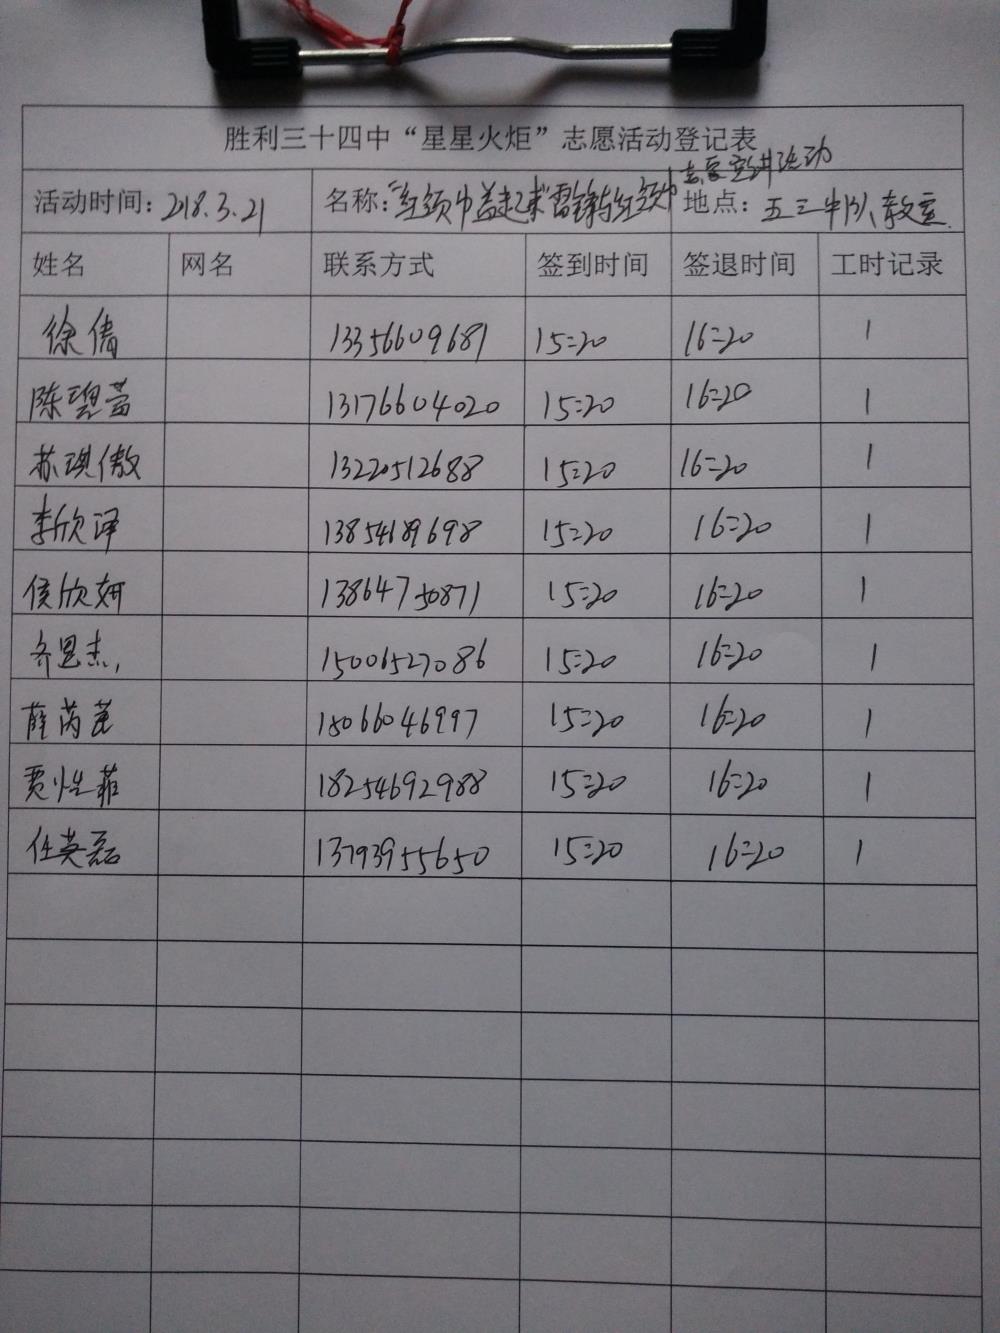 胜利三十四中“星星火炬”志愿活动登记表
志愿宣讲活动
活动时间: 218.3.21 名称: “红领巾益起来”雷锋与红领巾 地点: 五三中队教室
姓名 网名 联系方式 签到时间 签退时间 工时记录
徐倩 13356609681 15:20 16:20 1
陈琾蕾 13176604020 15:20 16:20 1
苏琪傲 13220512688 15:20 16:20 1
李欣译 13854689698 15:20 16:20 1
侯欣妍 13864750871 15:20 16:20 1
齐思杰 15006527086 15:20 16:20 1
薛芮 18066046997 15:20 16:20 1
贾 菲 18254692988 15:20 16:20 1
任英磊 13793955650 15:20 16:20 1